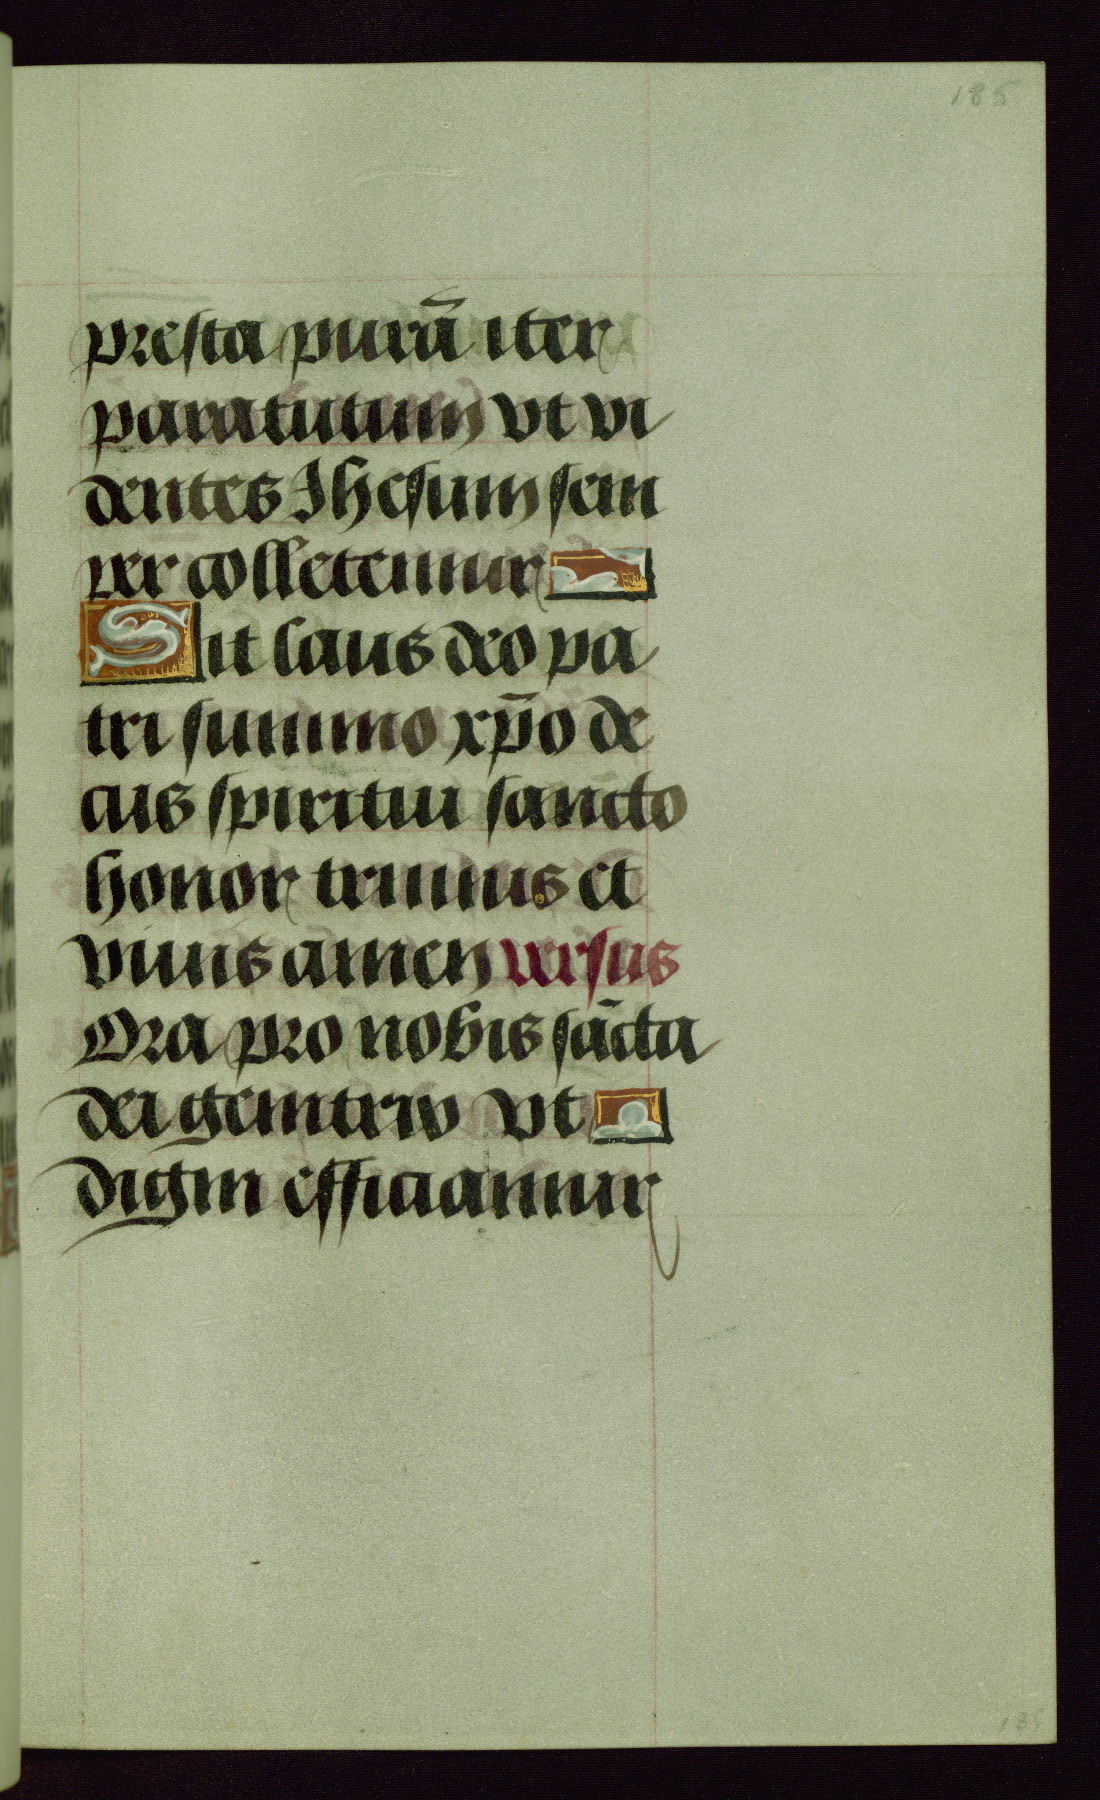 185
presta purā iter
paratutum vt vi
dentes Ihesum sem
per colletemur
Sit laus deo pa
tri summo xp̄o de
cus spiritui sancto
honor trinus et
vnus amen versus
Ora pro nobis sācta
dei genitrix vt
digni efficiamur
185